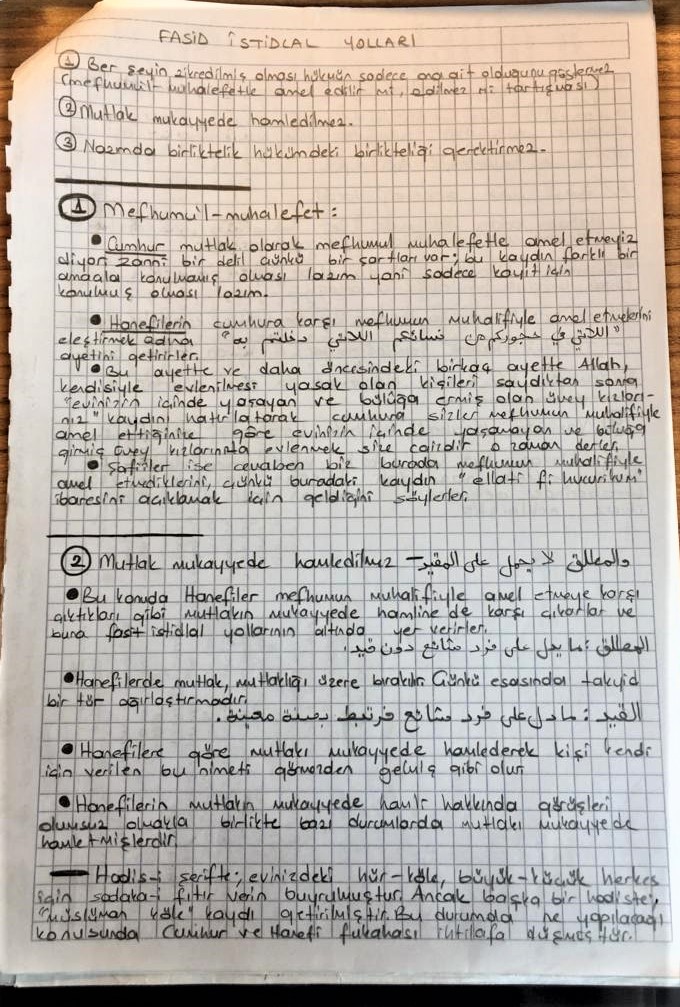 FASİD İSTİDLAL YOLLARI
① Bir şeyin zikredilmiş olması hükmün sadece ona ait olduğunu göstermez
(mefhumu'l-muhalefetle amel edilir mi, edilmez mi tartışması)
② Mutlak mukayyede hamledilmez.
③ Nazımda birliktelik hükümdeki birlikteliği gerektirmez.
① Mefhumu'l-muhalefet:
• Cumhur mutlak olarak mefhumul muhalefetle amel etmeyiz
diyor. zanni bir delil çünkü bir şartları var; bu kaydın farklı bir
amaçla konulmamış olması lazım yani sadece kayıt için
konulmuş olması lazım.
• Hanefilerin cumhura karşı mefhumun muhalifiyle amel etmelerini
eleştirmek adına "اللاتي في حجوركم من نسائكم اللاتي دخلتم به"
ayetini getirirler.
• Bu ayette ve daha öncesindeki birkaç ayette Allah,
kendisiyle evlenilmesi yasak olan kişileri saydıktan sonra
"evinizin içinde yaşayan ve bülüğa ermiş olan üvey kızları-
nız" kaydını hatırlatarak cumhura sizler mefhumun muhalifiyle
amel ettiğinize göre evinizin içinde yaşamayan ve bülüğa
girmiş üvey kızlarınızla evlenmek size caizdir o zaman derler.
• Şafiiler ise cevaben biz burada mefhumun muhalifiyle
amel etmediklerini, çünkü buradaki kaydın "ellati fi hucurikum"
ibaresini açıklamak için geldiğini söylerler.
② Mutlak mukayyede hamledilmez – والمطلق لا يحمل على المقيد
• Bu konuda Hanefiler mefhumun muhalifiyle amel etmeye karşı
çıktıkları gibi mutlakın mukayyede hamline de karşı çıkarlar ve
buna fasit istidlal yollarının altında yer verirler.
المطلق: ما يدل على فرد شائع دون قيد.
• Hanefilerde mutlak, mutlaklığı üzere bırakılır. Çünkü esasında takyid
bir tür ağırlaştırmadır.
القيد: ما دل على فرد شائع مرتبط بصفة معينة.
• Hanefilere göre mutlakı mukayyede hamlederek kişi kendi
için verilen bu nimeti görmezden gelmiş gibi olur.
• Hanefilerin mutlakın mukayyede hamli hakkında görüşleri
olumsuz olmakla birlikte bazı durumlarda mutlakı mukayyede
hamletmişlerdir.
— Hadis-i şerifte; evinizdeki hür-köle, büyük-küçük herkes
için sadaka-i fıtır verin buyrulmuştur. Ancak başka bir hadiste,
"müslüman köle" kaydı getirilmiştir. Bu durumda ne yapılacağı
konusunda Cumhur ve Hanefi fukahası ihtilafa düşmüştür.